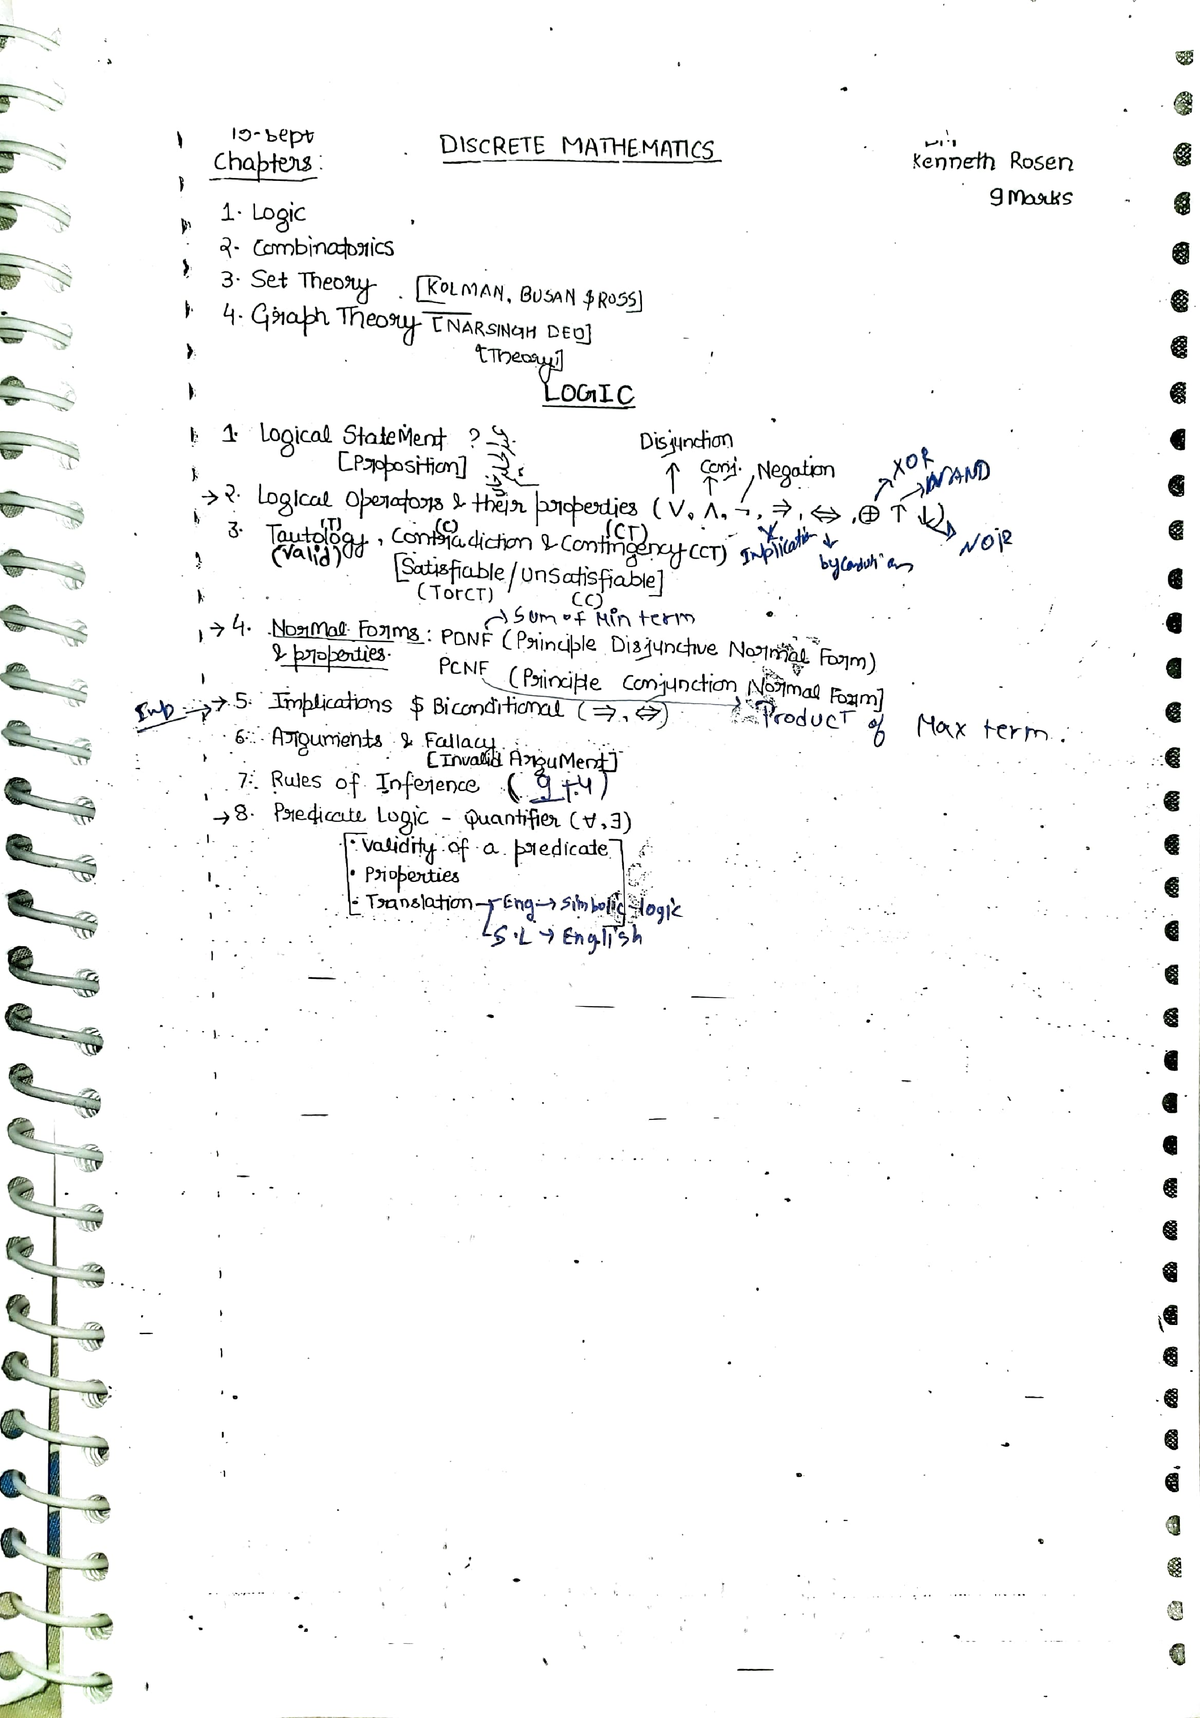 10-Sept
DISCRETE MATHEMATICS
Kenneth Rosen
9 Marks
Chapters:
1. Logic
2. Combinatorics
3. Set Theory [KOLMAN, BUSAN $ ROSS]
4. Graph Theory [NARSINGH DEO]
[Theory]
LOGIC
1. Logical StateMent ?
[Proposition]
Disjunction
Conj. Negation
XOR
NAND
→2. Logical Operators & their properties (∨, ∧, ¬, ⇒, ⇔, ⊕ ↑ ↓)
NOR
Implication
byconditions
(T) (C) (CT)
3. Tautology, Contradiction & Contingency (CT)
(Valid)
[Satisfiable/Unsatisfiable]
(TorCT) (C)
→ Sum of Min term
→4. Normal Forms: PDNF (Principle Disjunctive Normal Form)
& properties.
PCNF (Principle Conjunction Normal Form]
Product of Max term.
Imp →→5. Implications $ Biconditional (⇒, ⇔)
6. Arguments & Fallacy
[Invalid ArguMent]
7. Rules of Inference (9+4)
→8. Predicate Logic - Quantifier (∀, ∃)
• Validity of a predicate
• Properties
• Translation → Eng → Simbolic logic
S.L → English